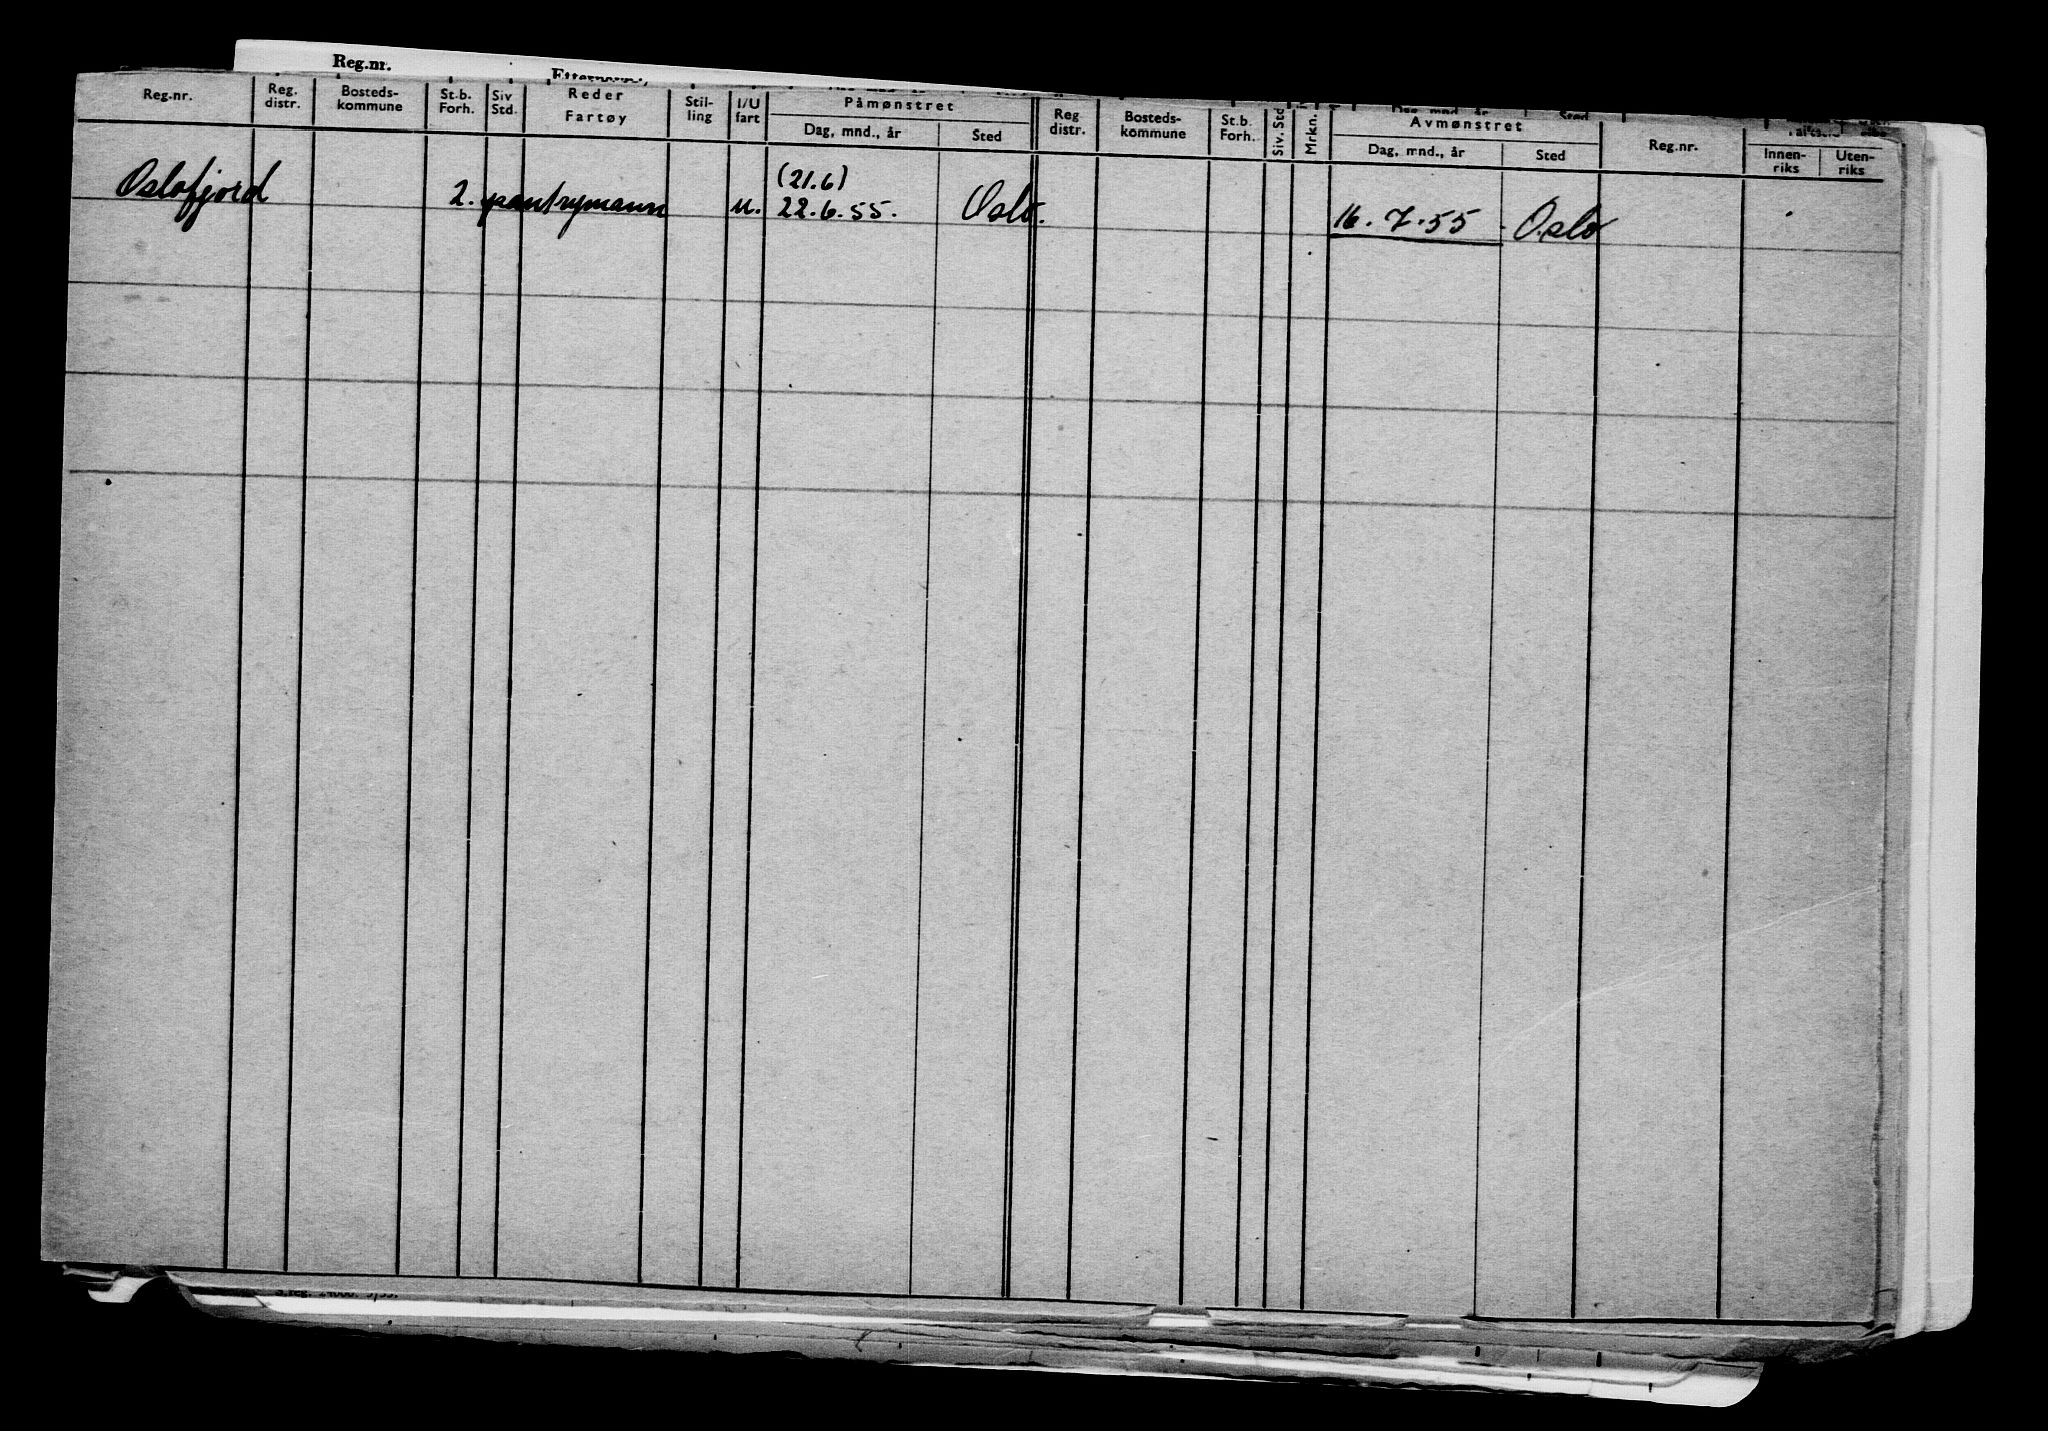 Reg.nr.
Reg.nr. Reg. distr. Bosteds-kommune St.b. Forh. Siv Std. Reder Fartøy Stil-ling I/U fart Påmønstret Dag, mnd., år Sted Reg distr. Bosteds-kommune St.b. Forh. Siv. Std Mrkn. Avmønstret Dag, mnd., år Sted Reg.nr. Innen-riks Uten-riks
(21.6)
Oslofjord 2. pantrymann u. 22.6.55. Oslo. 16.7.55 Oslo